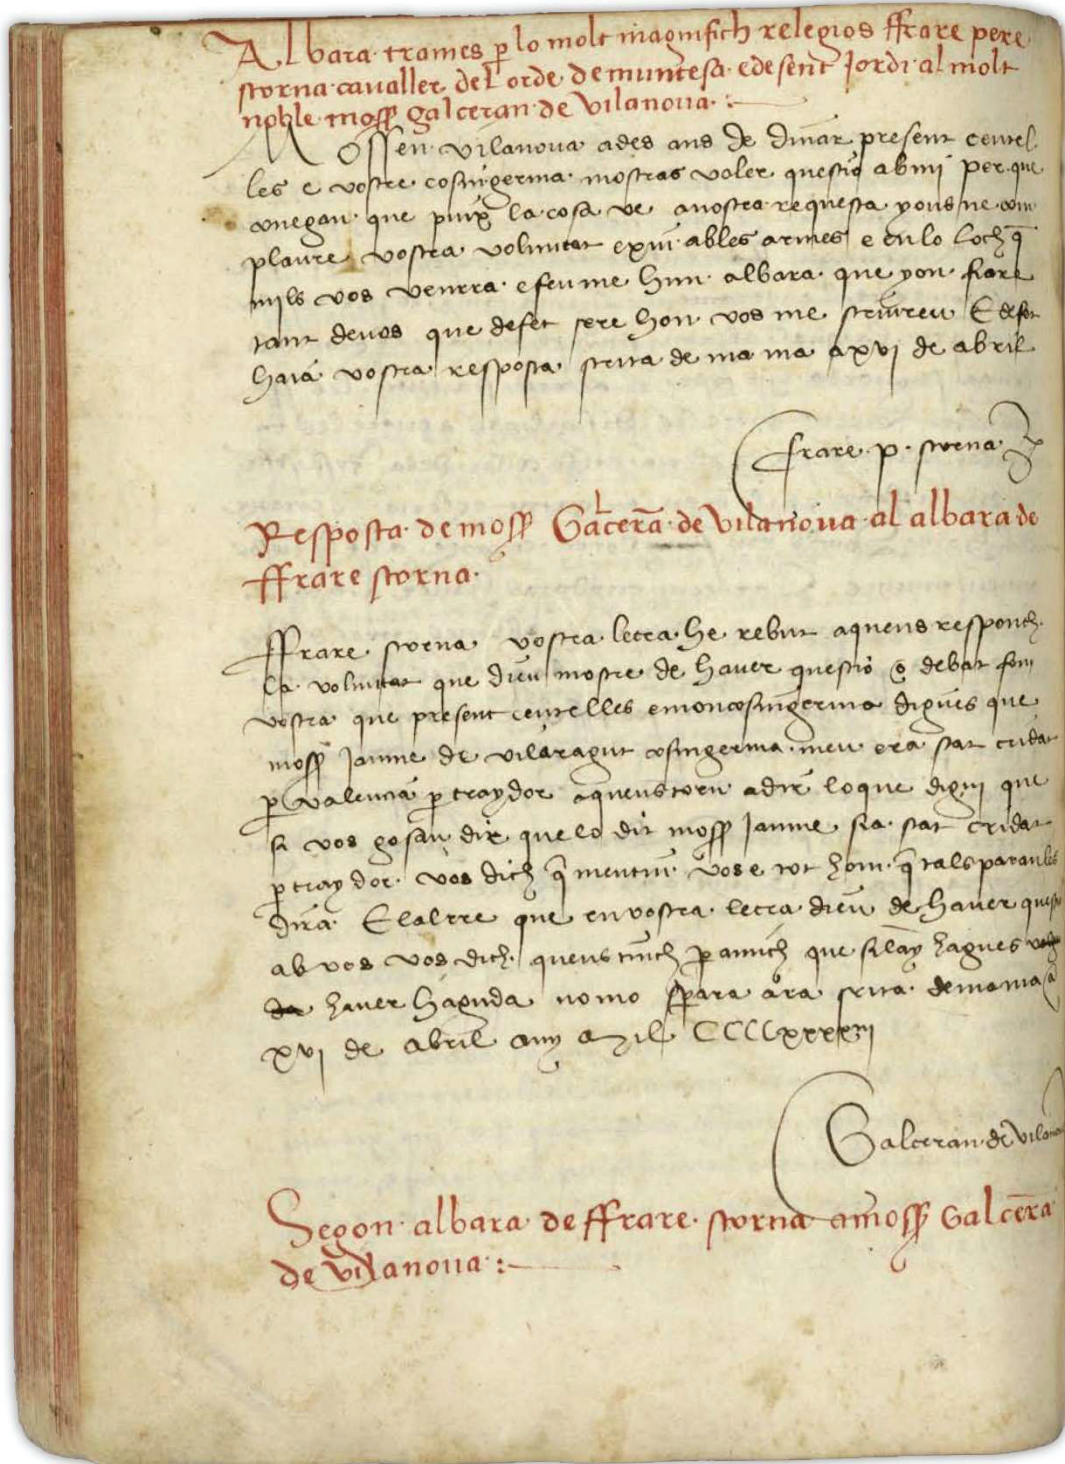 Albara· trames p lo molt magnifich relegios ffrare pere
storna·cavaller· del orde de muntesa· e de sent Jordi·al molt
noble·moss galceran·de vilanova·:
Mossen·vilanova ades ans de dinar present centel
les e vostre·cosingerma·mostras voler questio ab mi per·que
que puix la cosa ve a vostra requesta yo us ne com
plaure vostra voluntat ab les armes e en lo loch q
mils vos venrra· e feu me hun·albara·que yo
tant de vos que de fet sere hon vos me scriureu E de fet
haia vostra resposta scrita de ma ma a xvj de abril
frare·p·storna
Resposta·de moss Galcera·de vilanova·al albara·de
ffrare storna·
ffrare storna vostra·letra·he rebut a quens responch·
la voluntat que dieu mostre de haver questio o debat fou
vostra que present centelles e mon cosingerma digues que
moss Jaume de vilaragut cosingerma·meu era stat cridat
p valencia p traydor a quens torn a dir lo que digui que
si vos gosau dir que lo dit moss Jaume sia stat cridat
p traydor· vos dich q mentiu vos e tot hom·q tals paraules
dira E lalrre que en vostra·letra dieu de haver questio
ab vos vos dich· quens tinch p amich que si lay hagues
haver haguda no mo spara ara scrita de ma ma a
xvj de abril any Mil CCCCxxxx
Galceran·de vilano
Segon·albara de ffrare·storna a moss Galcera·
de vilanova·: